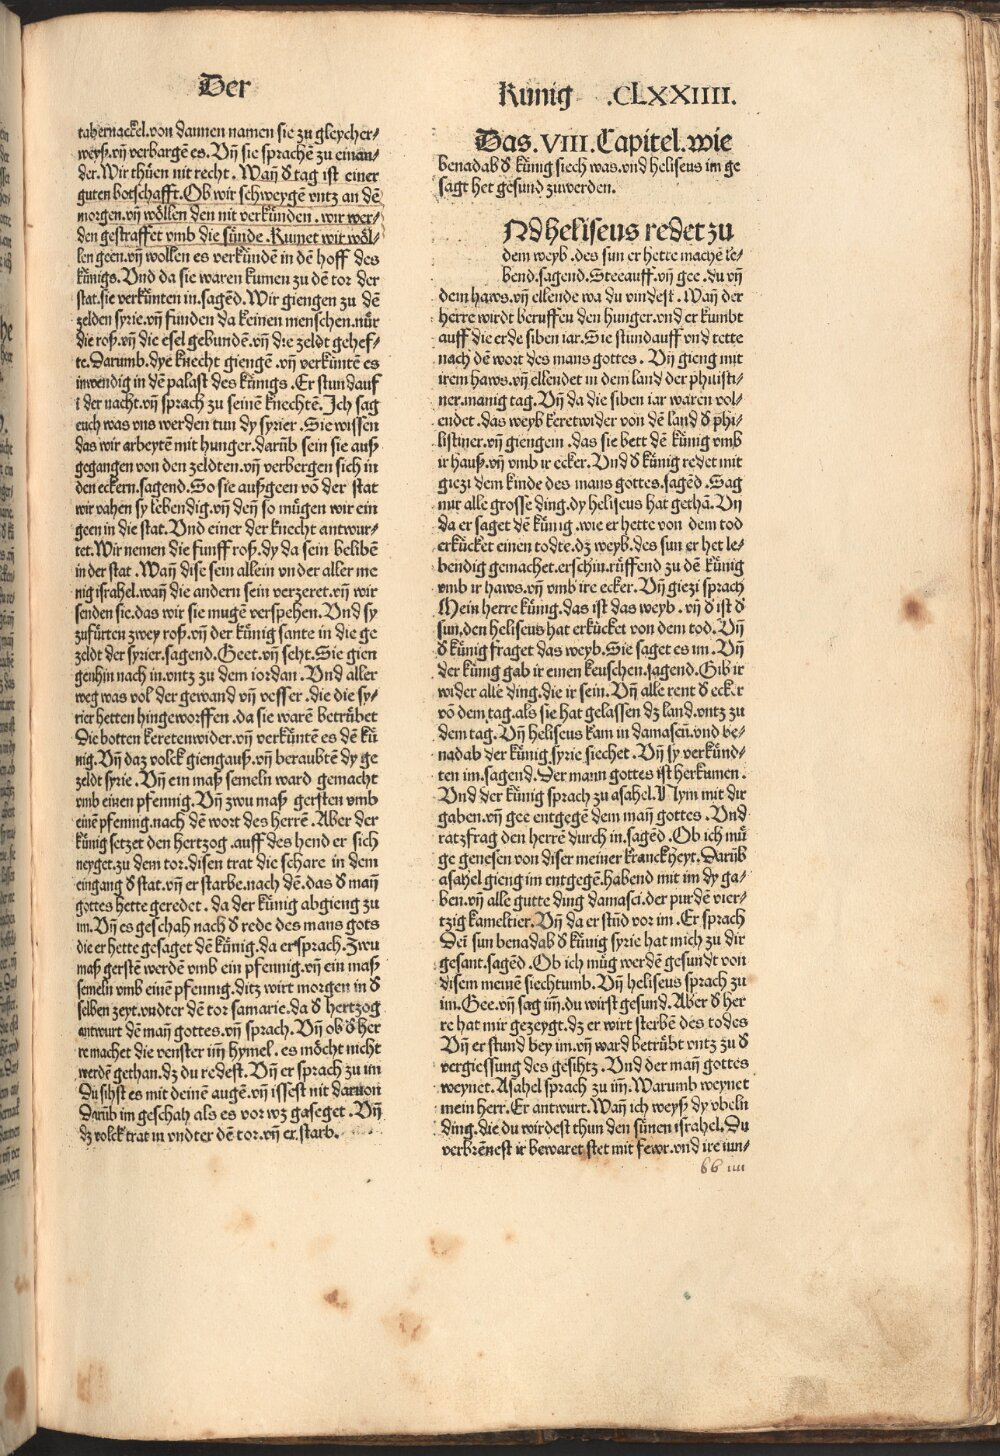 Der
Künig .CLXXIIII.
tabernackel.von dannen namen sie zu gleycher⸗
weyß.vñ verbargẽ es. Vñ sie sprachẽ zu einan⸗
der. Wir thüen nit recht. Wañ d tag ist einer
guten botschafft. Ob wir schweygẽ vntz an dẽ
morgen.vñ wöllen den nit verkünden. wir wer⸗
den gestraffet vmb die sünde. Kumet wir wöl⸗
len geen.vñ wollen es verkündẽ in dẽ hoff des
künigs. Vnd da sie waren kumen zu dẽ tor der
stat.sie verkünten in.sagẽd. Wir giengen zu dẽ
zelden syrie.vñ funden da keinen menschen.nůr
die roß.vñ die esel gebundẽ.vñ die zeldt gehef⸗
te. Darumb.dye knecht giengẽ.vñ verküntẽ es
inwendig in dẽ palast des künigs. Er stund auf
i der nacht.vñ sprach zu seinẽ knechtẽ. Ich sag
euch was vns werden tun dy syrier. Sie wissen
das wir arbeytẽ mit hunger.darüb sein sie auß
gegangen von den zeldten.vñ verbergen sich in
den eckern.sagend. So sie außgeen võ der stat
wir vahen sy lebendig.vñ deñ so mügen wir ein
geen in die stat. Vnd einer der knecht antwur⸗
tet. Wir nemen die funff roß.dy da sein belibẽ
in der stat. Wañ dise sein allein vnder aller me
nig israhel.wañ die andern sein verzeret.vñ wir
senden sie.das wir sie mugẽ verspehen. Vnd sy
zufürten zwey roß.vñ der künig sante in die ge
zeldt der syrier.sagend. Geet.vñ seht. Sie gien
gen hin nach in.vntz zu dem iordan. Vnd aller
weg was vol der gewand vñ vesser.die die sy⸗
rier hetten hingeworffen.da sie warẽ betrübet
Die botten keretenwider.vñ verküntẽ es dẽ kü
nig. Vñ daz volck giengauß.vñ beraubtẽ dy ge
zeldt syrie. Vñ ein maß semeln ward gemacht
vmb einen pfennig. Vñ zwu maß gersten vmb
einẽ pfennig.nach dẽ wort des herrẽ. Aber der
künig setzet den hertzog.auff des hend er sich
neyget.zu dem tor.disen trat die schare in dem
eingang d stat.vñ er starbe.nach dẽ.das d mañ
gottes hette geredet.da der künig abgieng zu
im. Vñ es geschah nach d rede des mans gots
die er hette gesaget dẽ künig.da ersprach. Zwu
maß gerstẽ werdẽ vmb ein pfennig.vñ ein maß
semeln vmb einẽ pfennig.ditz wirt morgen in d
selben zeyt.vndter dẽ tor samarie.da d hertzog
antwurt dẽ mañ gottes.vñ sprach. Vñ ob d her
re machet die venster im̃ hymel.es möcht nicht
werdẽ gethan.dz du redest. Vñ er sprach zu im
Du sihst es mit deinẽ augẽ.vñ issest nit daruon
Darüb im geschah als es vor wz gaseget. Vñ
dz volck trat in vndter dẽ tor.vñ er.starb.
Das.VIII.Capitel.wie
benadab d künig siech was.vnd heliseus im ge
sagt het gesund zuwerden.
Nd heliseus redet zu
dem weyb.des sun er hette machẽ le⸗
bend.sagend. Steeauff.vñ gee.du vñ
dem haws.vñ ellende wa du vindest. Wañ der
herre wirdt beruffen den hunger.vnd er kumbt
auff die erde siben iar. Sie stundauff vnd tette
nach dẽ wort des mans gottes. Vñ gieng mit
irem haws.vñ ellendet in dem land der philisti⸗
ner.manig tag. Vñ da die siben iar waren vol⸗
endet.das weyb keretwider von dẽ land d phi⸗
listiner.vñ giengein.das sie bett dẽ künig vmb
ir hauß.vñ vmb ir ecker. Vnd d künig redet mit
giezi dem kinde des mans gottes.sagẽd. Sag
mir alle grosse ding.dy heliseus hat gethã. Vñ
da er saget dẽ künig.wie er hette von dem tod
erkücket einen todte.dz weyb.des sun er het le⸗
bendig gemachet.erschin.rüffend zu dẽ künig
vmb ir haws.vñ vmb ire ecker. Vñ giezi sprach
Mein herre künig.das ist das weyb.vñ d ist d
sun.den heliseus hat erkücket von dem tod. Vñ
d künig fraget das weyb. Sie saget es im. Vñ
der künig gab ir einen keuschen.sagend. Gib ir
wider alle ding.die ir sein. Vñ alle rent d ecker
võ dem tag.als sie hat gelassen dz land.vntz zu
dem tag. Vñ heliseus kam in damascũ.vnd be⸗
nadab der künig syrie siechet. Vñ sy verkünd⸗
ten im.sagend. Der mann gottes ist herkumen.
Vnd der künig sprach zu asahel. Nym mit dir
gaben.vñ gee entgegẽ dem mañ gottes. Vnd
ratzfrag den herrẽ durch in.sagẽd. Ob ich mü
ge genesen von diser meiner kranckheyt. Darüb
asahel gieng im entgegẽ.habend mit im dy ga⸗
ben.vñ alle gutte ding damasci.der purdẽ vier⸗
tzig kameltier. Vñ da er stüd vor im. Er sprach
Dei sun benadab d künig syrie hat mich zu dir
gesant.sagẽd. Ob ich müg werdẽ gesundt von
disem meinẽ siechtumb. Vñ heliseus sprach zu
im. Gee.vñ sag im̃.du wirst gesund. Aber d her
re hat mir gezeygt.dz er wirt sterbẽ des todes
Vñ er stund bey im.vñ ward betrübt vntz zu d
vergiessung des gesihtz. Vnd der mañ gottes
weynet. Asahel sprach zu im̃. Warumb weynet
mein herr. Er antwurt. Wañ ich weyß dy vbeln
ding.die du wirdest thun den sünen israhel. Du
verbrẽnest ir bewaret stet mit fewr.vnd ire iun⸗
66 iiii